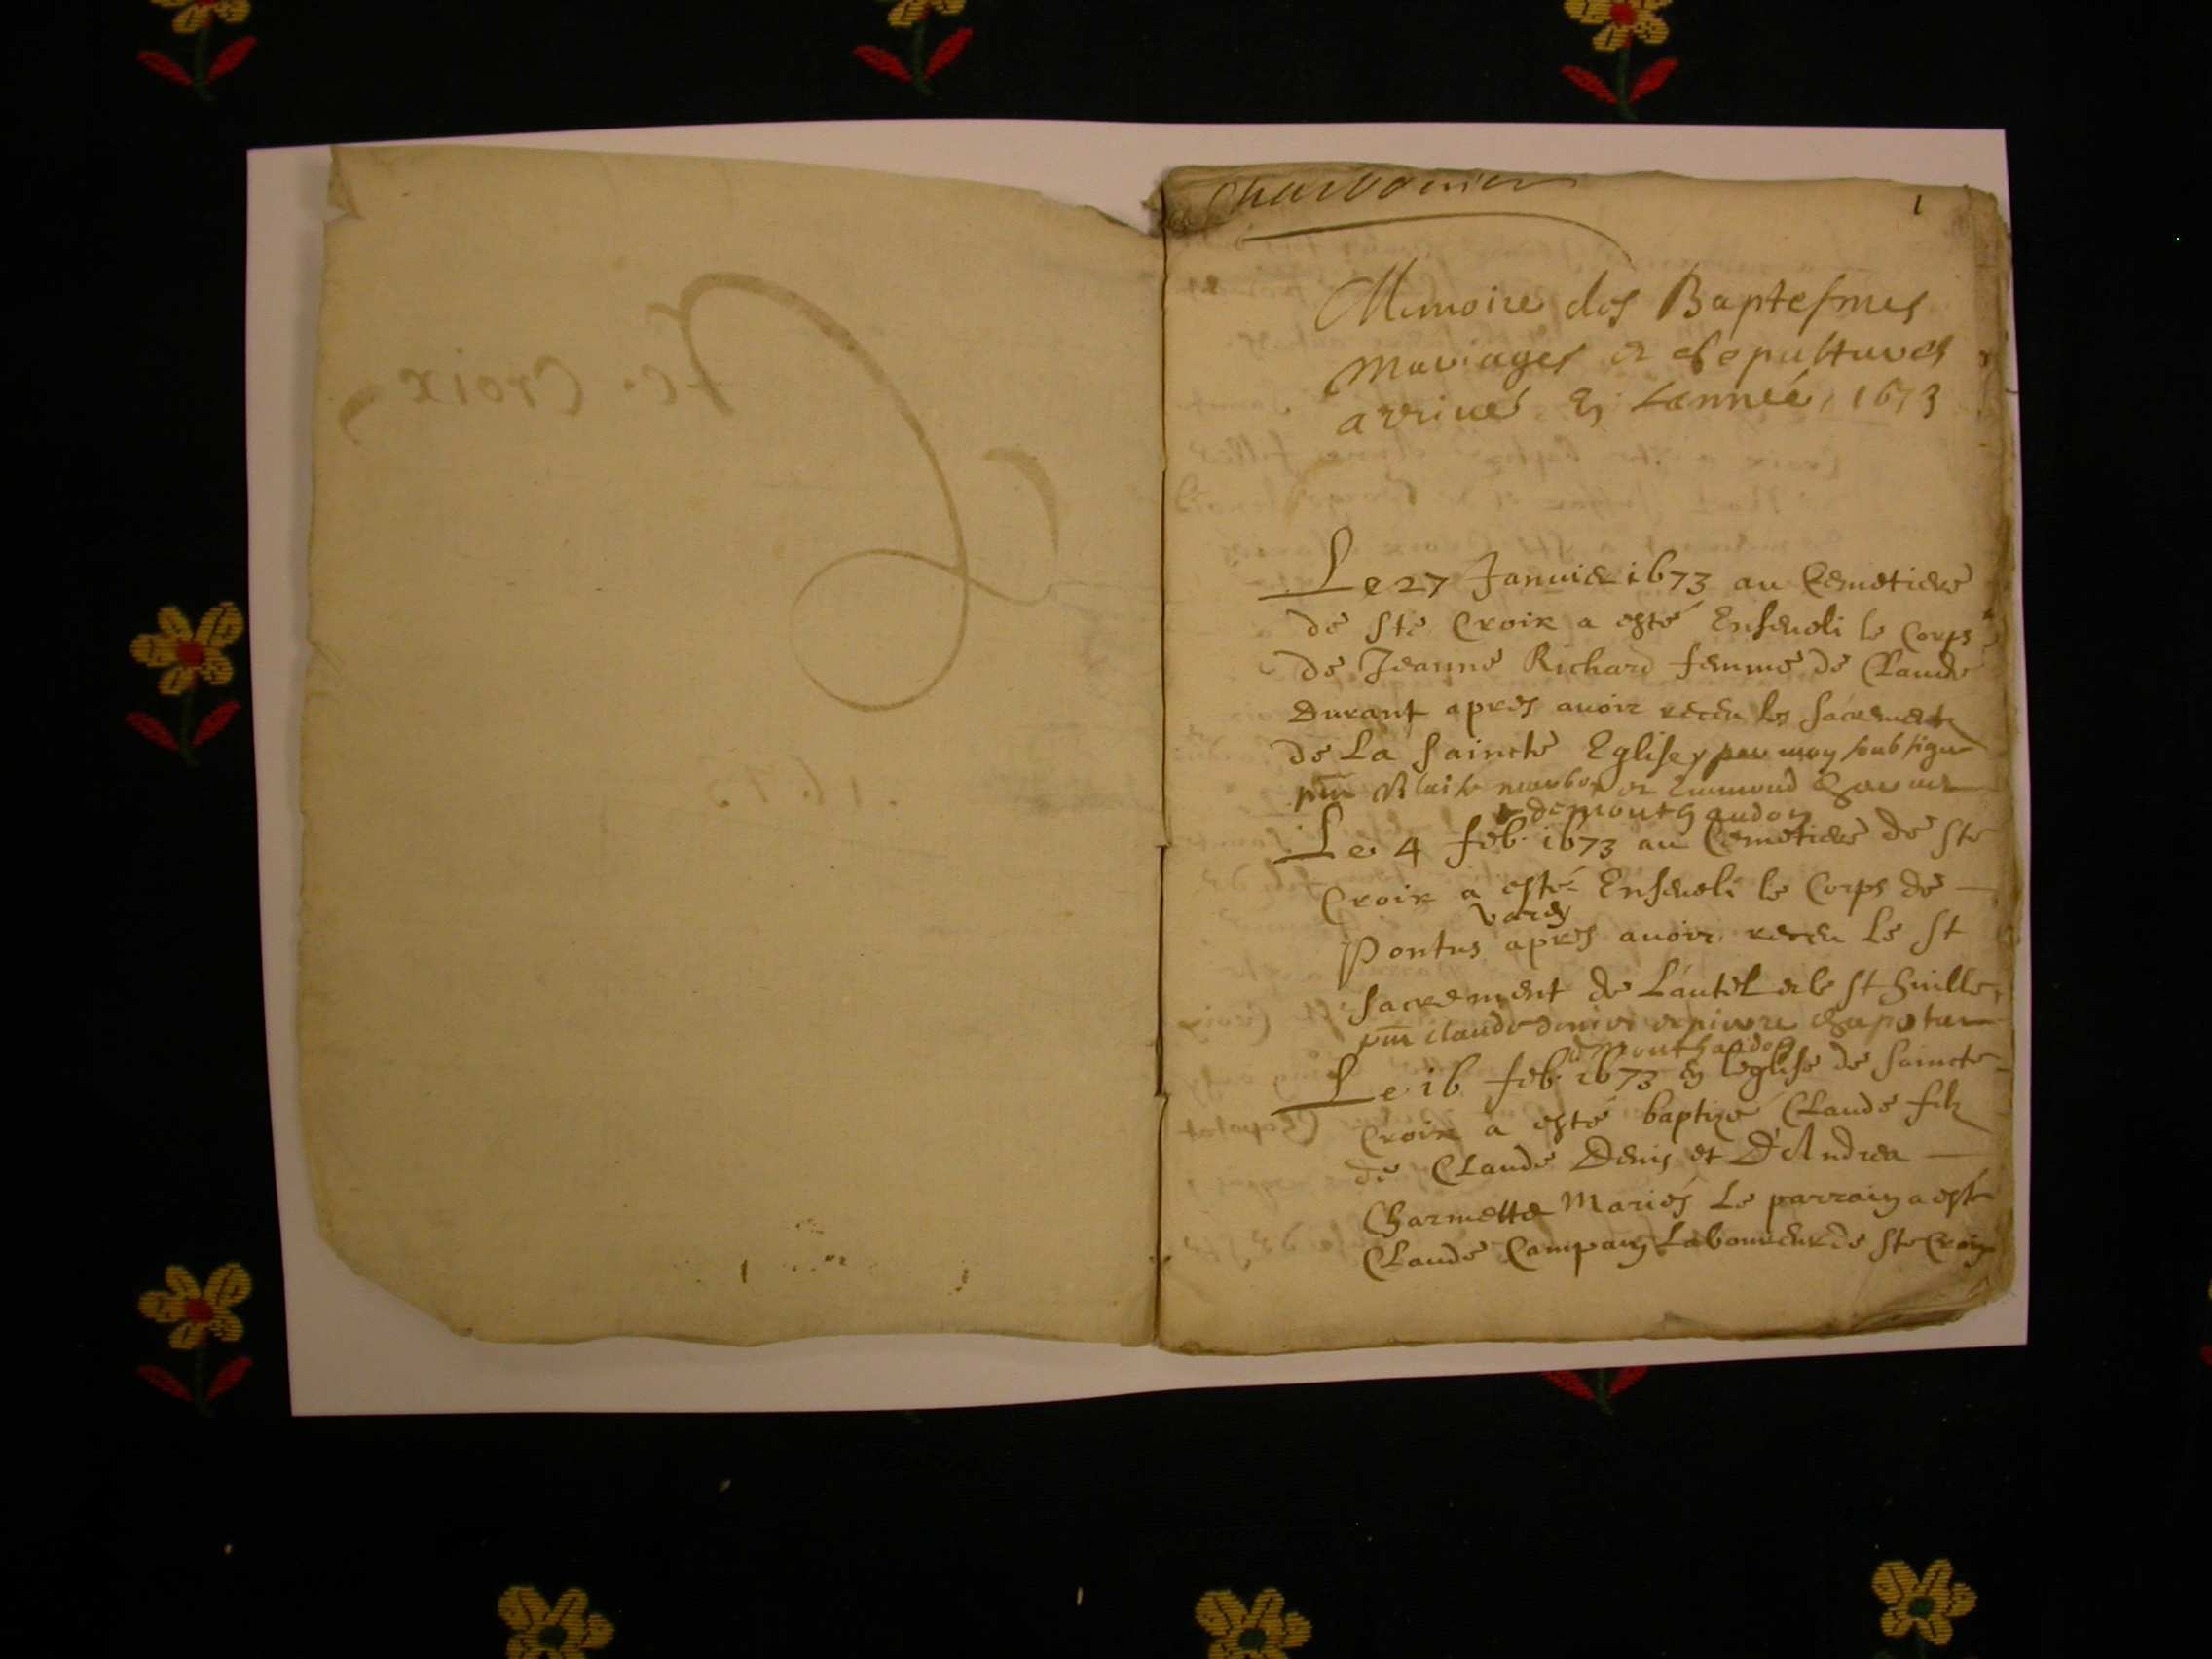 Ste. Croix
1673
Charbonier
1
Memoire des Baptesmes
Mariages et Sepultures
arrivés En Lannée, 1673
Le 27 Januier 1673 au Cemetiere
de Ste Croix a esté Enseueli le Corps
de Jeanne Richard femme de Claude
Durant apres auoir receu les sacrements
de La Saincte Eglise par moy soubsigne
pnt Blaise et Enemond
demonthaudon
Le 4 feb. 1673 au Cemetiere de Ste
Croix a esté Enseueli le Corps de
varey
Pontus apres auoir receu Le St
sacrement de Lautel et le St huille
pnt claude denis et chapotar
demonthaudon
Le 16 feb. 1673 En leglise de Saincte
Croix a esté baptizé Claude fils
de Claude Denis et D'Andrea
Charmette Mariés Le parrain a esté
Claude Campang Laboureur de Ste Croix